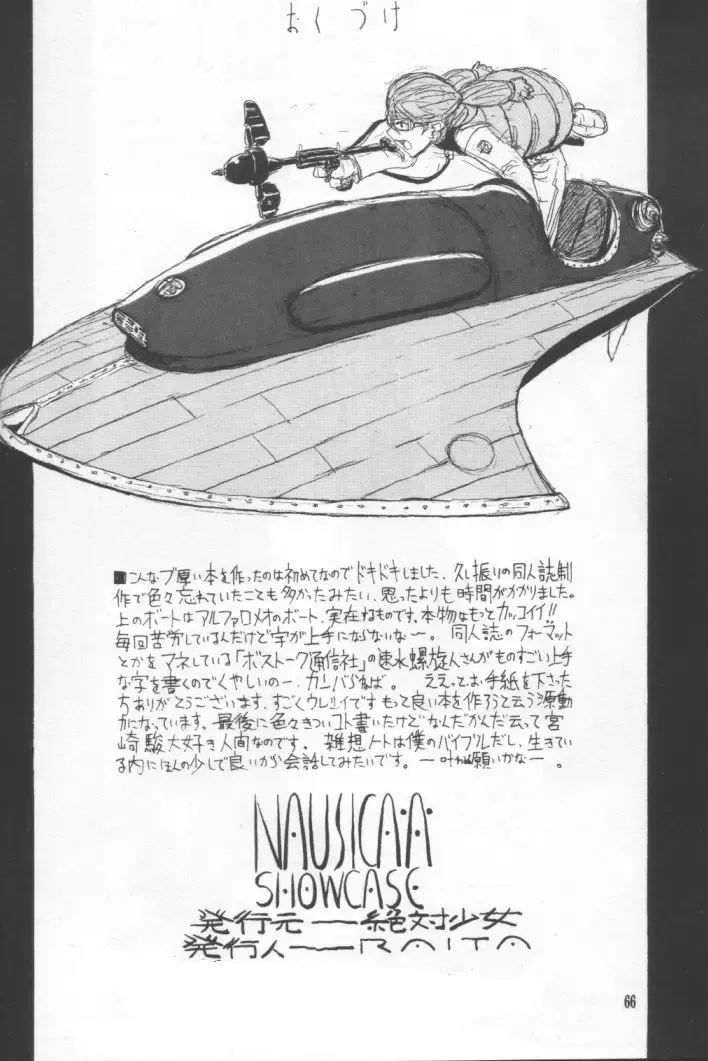 おくづけ
■こんなブ厚い本を作ったのは初めてなのでドキドキしました、久し振りの同人誌制
作で色々忘れていたことも多かたみたい、思ったよりも時間がかかりました。
上のボートはアルファロメオのボート、実在ねものです、本物なもっとカッコイイ!!
毎回苦労しているんだけど字が上手にならないなー。 同人誌のフォーマット
とかをマネしている「ボストーク通信社」の速水螺旋人さんがものすごい上手
な字を書くのでくやしいのー、カンバらねば。 ええっとお手紙を下さった
ちありがとうございます、すごくウレシイです もって良い本を作ろうと云う源動
力になっています。最後に色々きついコト書いたけどなんだかんだ云って宮
崎駿大好き人間なのです。 雑想ノートは僕のバイブルだし、生きてい
る内にほんの少しで良いから会話してみたいです。ー叶わぬ願いかなー 。
NAUSICAA
SHOWCASE
発行元ー絶対少女
発行人ーRAITA
66